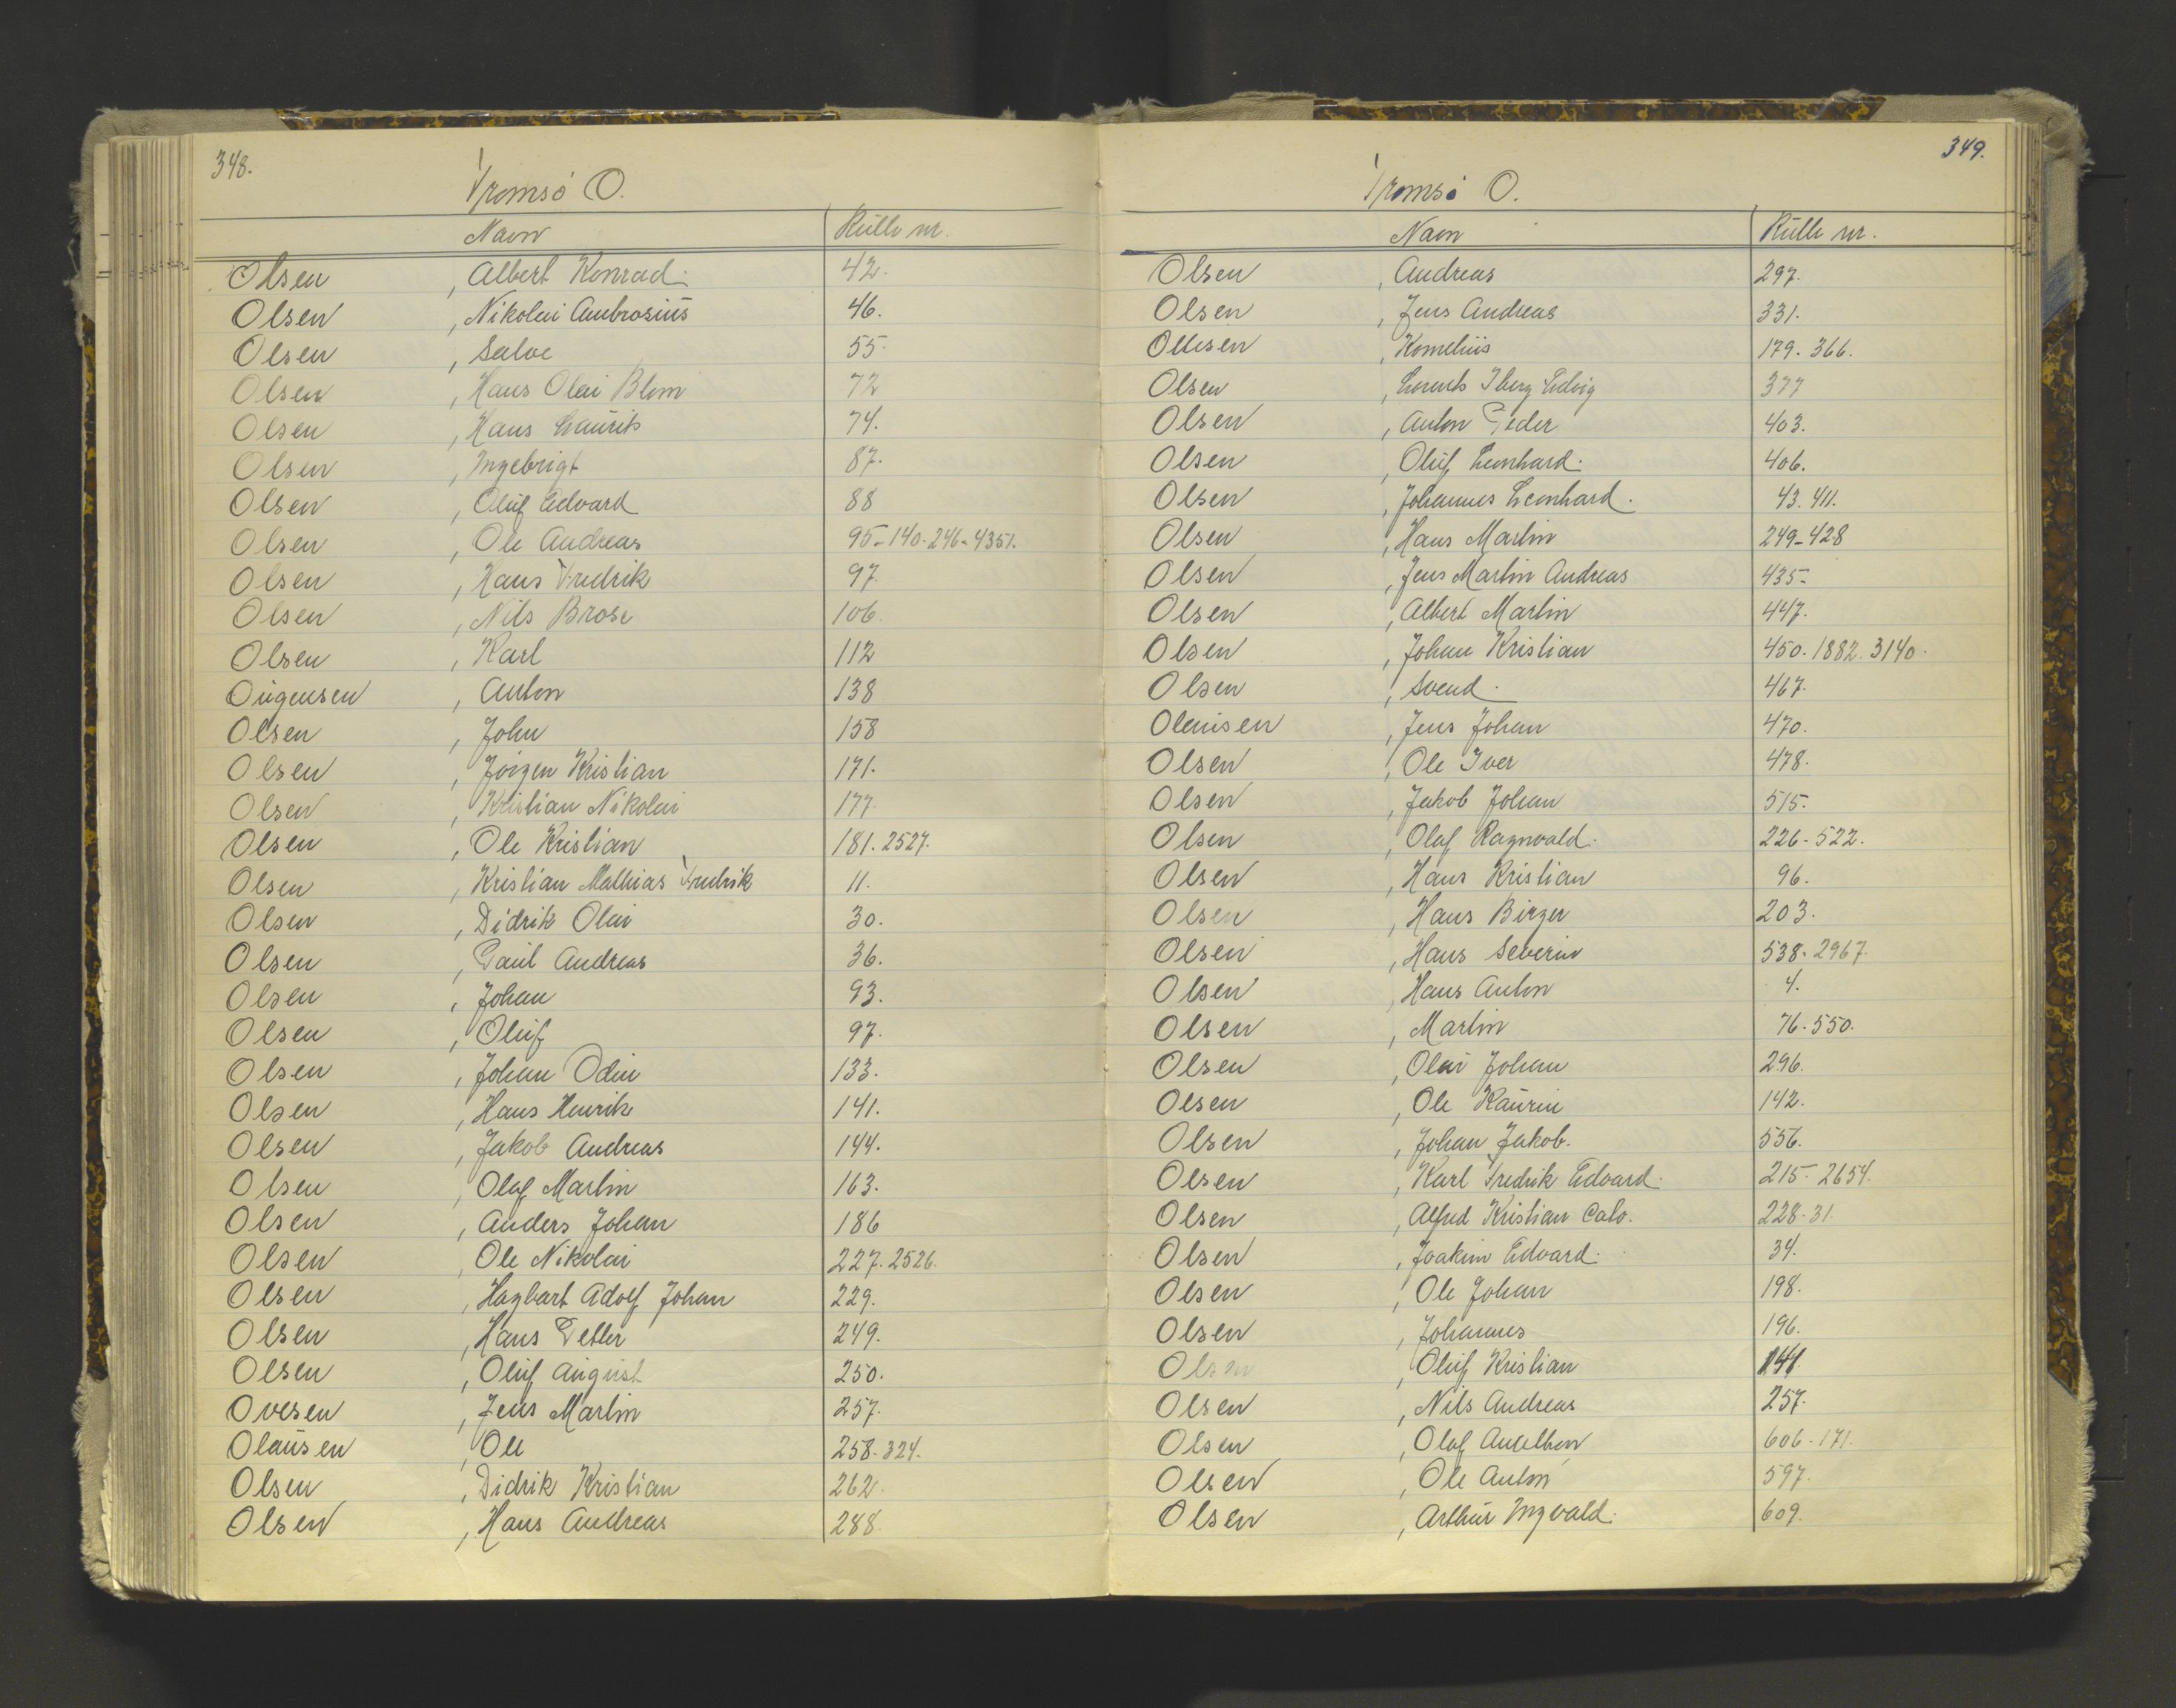 348.
Tromsö O.
Navn Rulle nr.
Olsen , Albert Konrad. 42.
Olsen , Nikolai Ambrosius 46.
Olsen , Salve 55.
Olsen , Hans Olai Blom 72
Olsen , Hans Laurits 74.
Olsen , Ingebrigt 87.
Olsen , Oluf Edvard 88
Olsen , Ole Andreas 95-140-246-4351.
Olsen , Hans Fredrik 97.
Olsen , Nils Brose 106.
Olsen , Karl 112
Ougensen , Anton 138
Olsen , John 158
Olsen , Jörgen Kristian 171.
Olsen , Kristian Nikolai 177.
Olsen , Ole Kristian 181. 2527.
Olsen , Kristian Mathias Fredrik 11.
Olsen , Didrik Olai 30.
Olsen , Paul Andreas 36.
Olsen , Johan 93.
Olsen , Oluf 97.
Olsen , Johan Odin 133.
Olsen , Hans Henrik 141.
Olsen , Jakob Andreas 144.
Olsen , Olaf Martin 163.
Olsen , Anders Johan 186
Olsen , Ole Nikolai 227. 2526.
Olsen , Hagbart Adolf Johan 229.
Olsen , Hans Petter 249.
Olsen , Oluf August 250.
Ovesen , Jens Martin 257.
Olausen , Ole 258-324.
Olsen , Didrik Kristian 262.
Olsen , Hans Andreas 288.
349.
Tromsö O.
Navn Rulle nr.
Olsen , Andreas 297.
Olsen , Jens Andreas 331.
Ottesen , Kornelius 179. 366.
Olsen , Lorents Iberg Ludvig 377
Olsen , Anton Peder 403.
Olsen , Oluf Leonhard. 406.
Olsen , Johannes Leonhard. 43. 411.
Olsen , Hans Martin 249-428
Olsen , Jens Martin Andreas 435-
Olsen , Albert Martin 447.
Olsen , Johan Kristian 450. 1882. 3140.
Olsen , Svend. 467.
Olausen , Jens Johan 470.
Olsen , Ole Iver 478.
Olsen , Jakob Johan 515.
Olsen , Olaf Ragnvald. 226-522.
Olsen , Hans Kristian 96.
Olsen , Hans Birger 203.
Olsen , Hans Severin 538. 2967.
Olsen , Hans Anton 4.
Olsen , Martin 76-550.
Olsen , Olai Johan 296.
Olsen , Ole Kaurin 142.
Olsen , Johan Jakob. 556.
Olsen , Karl Fredrik Edvard. 215-2654.
Olsen , Alfred Kristian 228-31.
Olsen , Joakim Edvard. 34.
Olsen , Ole Johan 198.
Olsen , Johannes 196.
Olsen , Oluf Kristian
Olsen , Nils Andreas 257.
Olsen , Olaf 606-171.
Olsen , Ole Anton 597.
Olsen , Arthur Ingvald. 609.